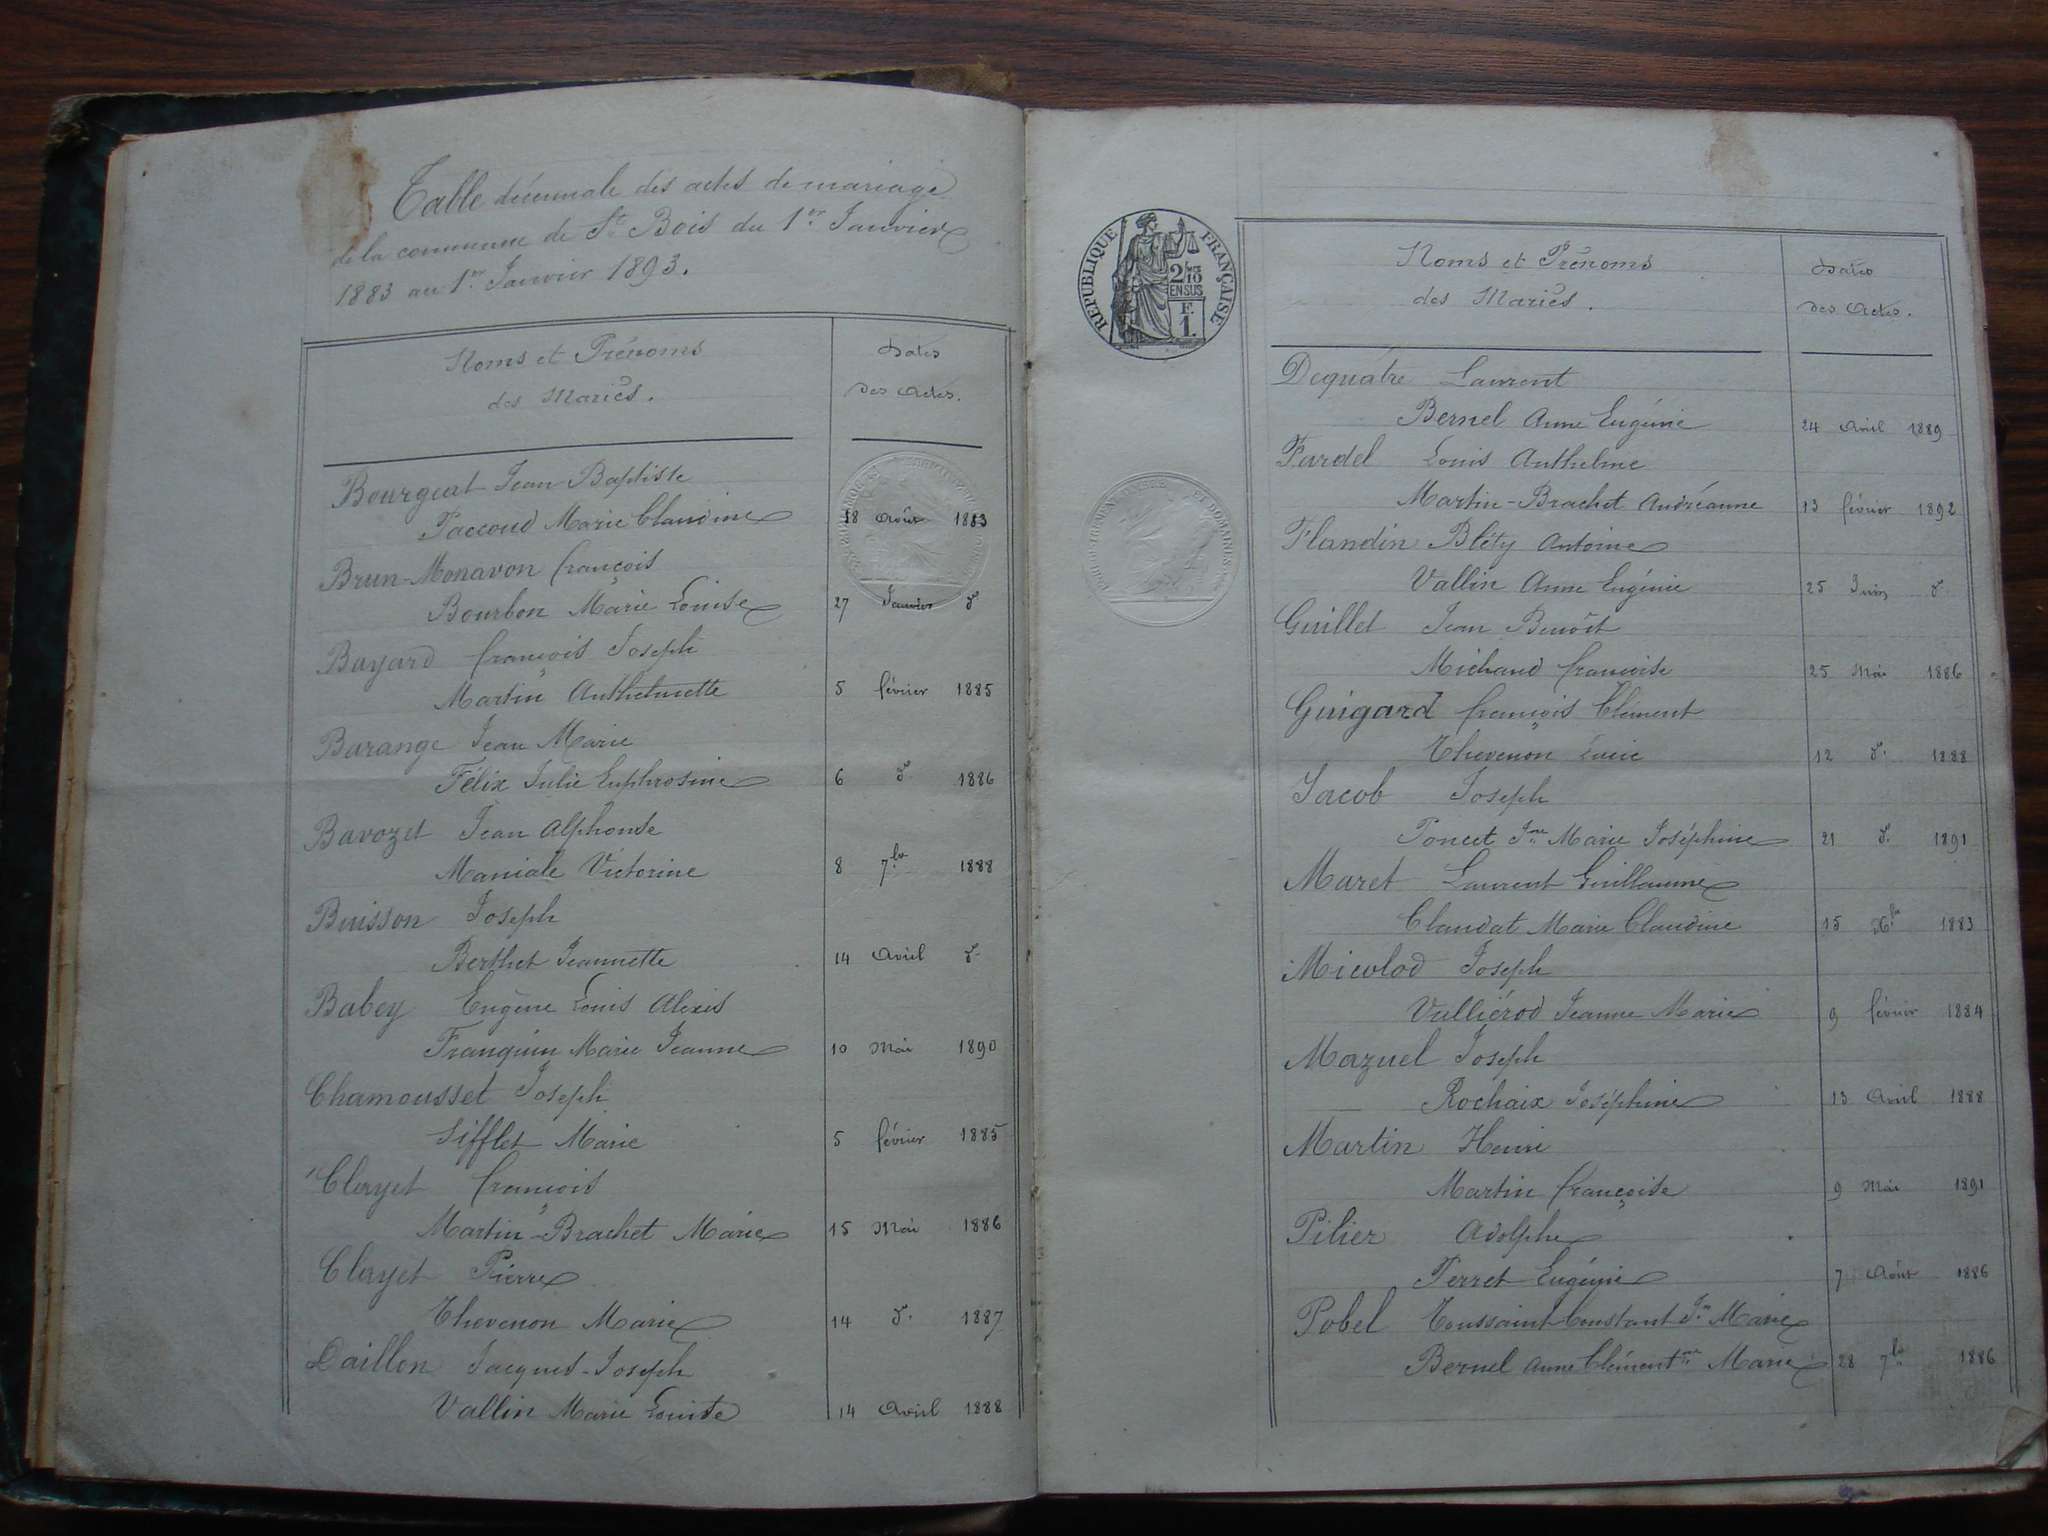 Table décennale des actes de mariage
de la commune de St Bois du 1er Janvier
1883 au 1er Janvier 1893.
Noms et Prénoms
des Mariés.
Dates
des Actes.
Bourgeat Jean Baptiste
Paccoud Marie Claudine 18 Août 1883
Brun-Monavon françois
Bourbon Marie Louise 27 Janvier do
Bayard françois Joseph
Martin Anthelmette 5 février 1885
Barange Jean Marie
Félix Julie Euphrosine 6 do 1886
Bavozet Jean Alphonse
Maniale Victorine 8 7bre 1888
Buisson Joseph
Berthet Jeannette 14 Avril do
Babey Eugène Louis Alexis
Franquin Marie Jeanne 10 Mai 1890
Chamousset Joseph
Sifflet Marie 5 février 1885
Clayet françois
Martin-Brachet Marie 15 Mai 1886
Clayet Pierre
Thevenon Marie 14 do 1887
Daillon Jacques-Joseph
Vallin Marie Louise 14 Avril 1888
RÉPUBLIQUE FRANÇAISE
2/10
EN SUS
F.
1.
Noms et Prénoms
des Mariés.
Dates
des Actes.
Dequatre Laurent
Bernel Anne Eugénie 24 Avril 1889
Fardel Louis Anthelme
Martin-Brachet Andréanne 13 février 1892
Flandin Bléty Antoine
Vallin Anne Eugénie 25 Juin do
Guillet Jean Benoît
Michaud françoise 25 Mai 1886
Guigard françois Clément
Thevenon Lucie 12 do 1888
Jacob Joseph
Poncet Jne Marie Joséphine 21 do 1891
Maret Laurent Guillaume
Claudat Marie Claudine 15 Xbre 1883
Micolod Joseph
Vulliérod Jeanne Marie 9 février 1884
Mazuel Joseph
Rochaix Joséphine 13 Avril 1888
Martin Henri
Martin françoise 9 Mai 1891
Pilier Adolphe
Perret Eugénie 7 Août 1886
Pobel Toussaint Constant Jn Marie
Bernel Anne Clémentne Marie 28 7bre 1886